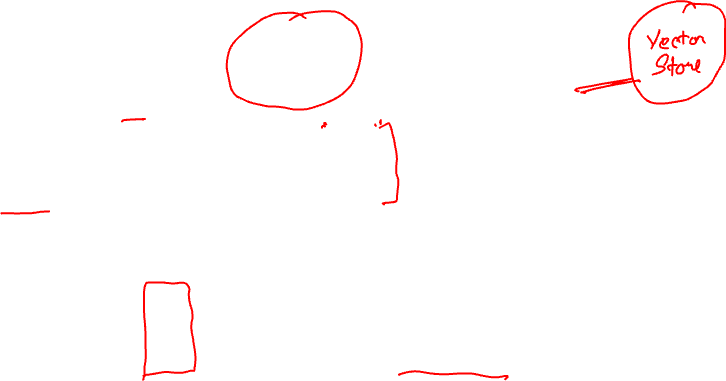 Vector
Store